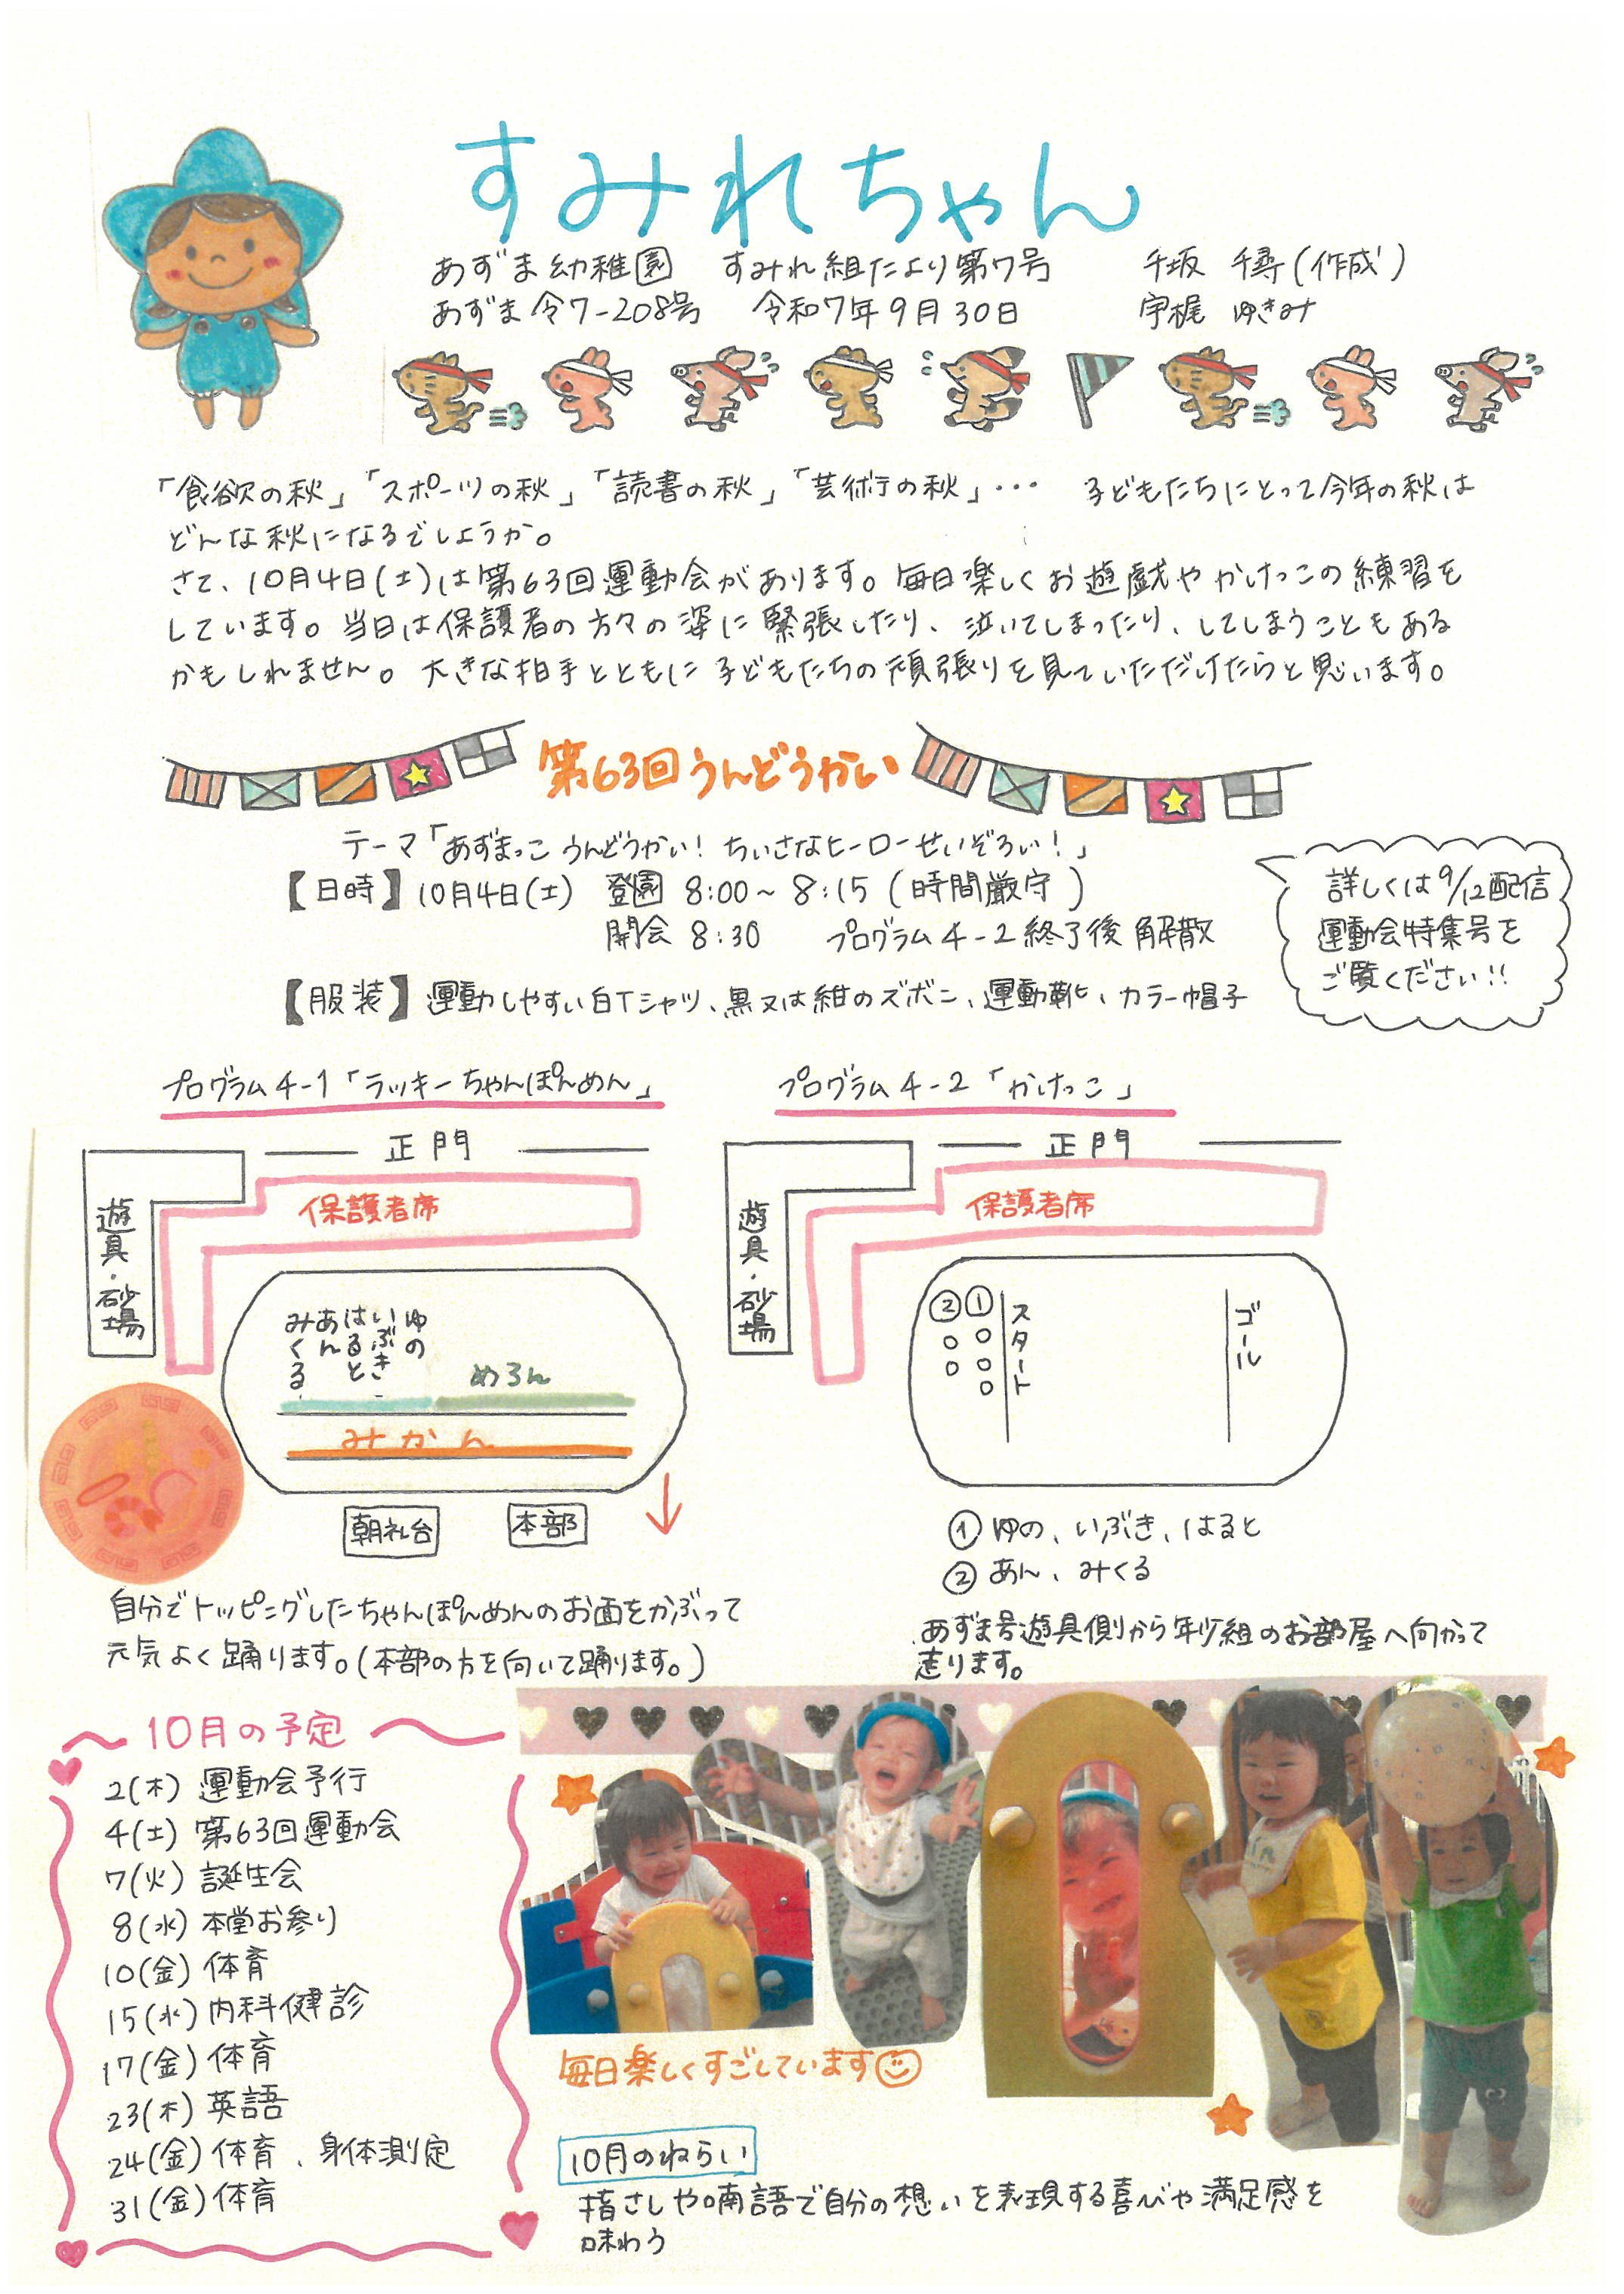 すみれちゃん
あずま幼稚園 すみれ組だより第7号 千坂 千尋(作成)
あずま令7-208号 令和7年9月30日 宇梶 ゆきみ
「食欲の秋」「スポーツの秋」「読書の秋」「芸術の秋」・・・ 子どもたちにとって今年の秋は
どんな秋になるでしょうか。
さて、10月4日(土)は第63回運動会があります。毎日楽しくお遊戯やかけっこの練習を
しています。当日は保護者の方々の姿に緊張したり、泣いてしまったり、してしまうこともある
かもしれません。大きな拍手とともに子どもたちの頑張りを見ていただけたらと思います。
第63回うんどうかい
テーマ「あずまっこ うんどうかい！ちいさなヒーローせいぞろい！」
【日時】10月4日(土) 登園 8:00～8:15(時間厳守)
開会 8:30 プログラム4-2終了後解散
【服装】運動しやすい白Tシャツ、黒又は紺のズボン、運動靴、カラー帽子
詳しくは9/12配信
運動会特集号を
ご覧ください!!
プログラム4-1「ラッキーちゃんぽんめん」
正門
遊具・砂場
保護者席
ゆの
いぶき
はると
あん
みくる
めろん
みかん
朝礼台
本部
自分でトッピングしたちゃんぽんめんのお面をかぶって
元気よく踊ります。(本部の方を向いて踊ります。)
プログラム4-2「かけっこ」
正門
遊具・砂場
保護者席
② ①
スタート
ゴール
①ゆの、いぶき、はると
②あん、みくる
あずま号遊具側から年少組のお部屋へ向かって
走ります。
10月の予定
2(木) 運動会予行
4(土) 第63回運動会
7(火) 誕生会
8(水) 本堂お参り
10(金) 体育
15(水) 内科健診
17(金) 体育
23(木) 英語
24(金) 体育、身体測定
31(金) 体育
毎日楽しくすごしています
10月のねらい
指さしや喃語で自分の想いを表現する喜びや満足感を
味わう